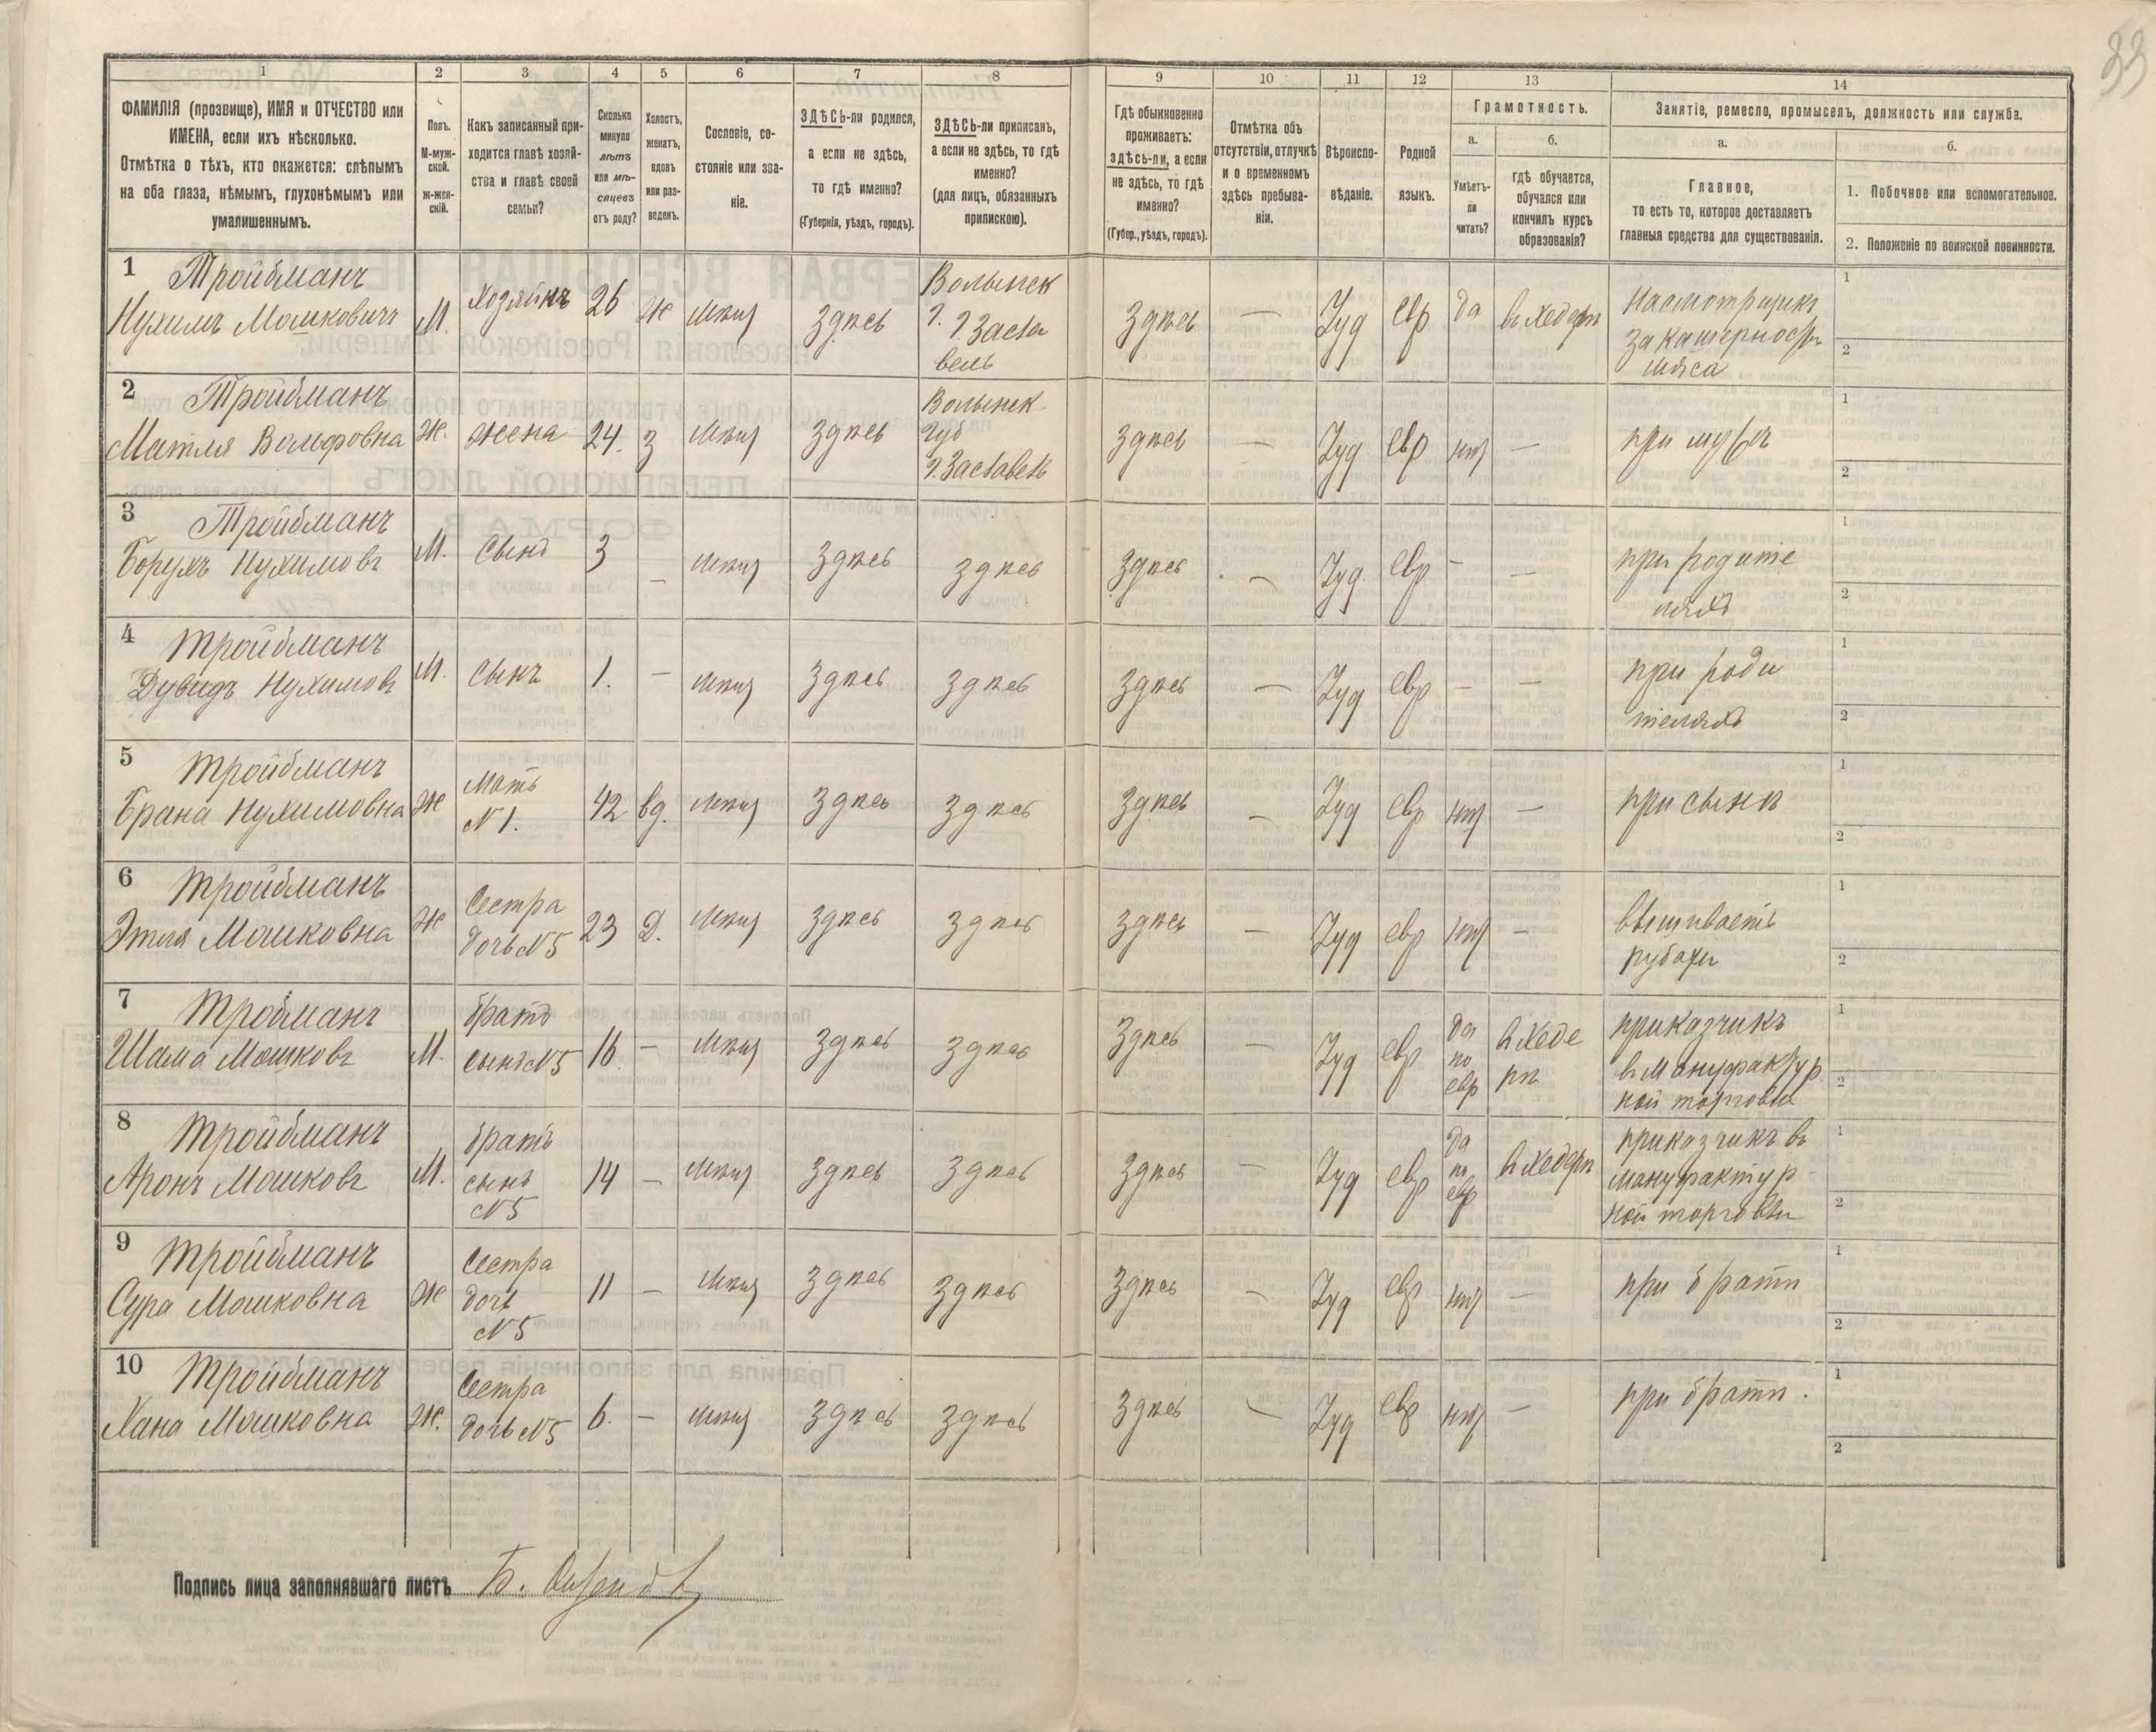 33
1 2 3 4 5 6 7 8 9 10 11 12 13 14
ФАМИЛІЯ (прозвище), ИМЯ и ОТЧЕСТВО или
ИМЕНА, если ихъ нѣсколько.
Отмѣтка о тѣхъ, кто окажется: слѣпымъ
на оба глаза, нѣмымъ, глухонѣмымъ или
умалишеннымъ.
Полъ.
М-муж-
ской.
ж-жен-
скій.
Какъ записанный при-
ходится главѣ хозяй-
ства и главѣ своей
семьи?
Сколько
минуло
лѣтъ
или мѣ-
сяцевъ
отъ роду?
Холостъ,
женатъ,
вдовъ
или раз-
веденъ.
Сословіе, со-
стояніе или зва-
ніе.
ЗДѢСЬ-ли родился,
а если не здѣсь,
то гдѣ именно?
(Губернія, уѣздъ, городъ).
ЗДѢСЬ-ли приписанъ,
а если не здѣсь, то гдѣ
именно?
(для лицъ, обязанныхъ
припискою).
Гдѣ обыкновенно
проживаетъ:
здѣсь-ли, а если
не здѣсь, то гдѣ
именно?
(Губер., уѣздъ, городъ).
Отмѣтка объ
отсутствіи, отлучкѣ
и о временномъ
здѣсь пребыва-
ніи.
Вѣроиспо-
вѣданіе.
Родной
языкъ.
Грамотность.
а.
Умѣетъ-
ли
читать?
б.
гдѣ обучается,
обучался или
кончилъ курсъ
образованія?
Занятіе, ремесло, промыселъ, должность или служба.
а.
Главное,
то есть то, которое доставляетъ
главныя средства для существованія.
б.
1. Побочное или вспомогательное.
2. Положеніе по воинской повинности.
1 Тройбманъ
Нухимъ Мошковичъ
М.
Хозяинъ
26
Ж
мѣщ
Здѣсь
Волынск
г.
г. Засла
вель
Здѣсь
—
Іуд
евр
да
въ Хедерѣ
Насмотрщикъ
за кашерностью
мяса
1
2
2 Тройбманъ
Матля Вольфовна
Ж.
жена
24.
З
мѣщ
Здѣсь
Волынск.
губ
г. Заславель
Здѣсь
—
Іуд
евр
нѣт
—
при мужѣ
1
2
3 Тройбманъ
Борухъ Нухимовъ
М.
Сынъ
3
—
мѣщ
Здѣсь
Здѣсь
Здѣсь
—
Іуд
евр
—
—
при родите
ляхъ
1
2
4 Тройбманъ
Дувидъ Нухимовъ
М.
сынъ
1.
—
мѣщ
Здѣсь
Здѣсь
Здѣсь
—
Іуд
евр
—
—
при роди
теляхъ
1
2
5 Тройбманъ
Брана Нухимовна
Ж
Мать
N 1.
42
вд.
мѣщ
Здѣсь
Здѣсь
Здѣсь
—
Іуд
евр
нѣт
—
при сынѣ
1
2
6 Тройбманъ
Этля Мошковна
Ж
Сестра
дочь N 5
23
Д.
мѣщ
Здѣсь
Здѣсь
Здѣсь
—
Іуд
евр
нѣт
—
вышиваетъ
рубахи
1
2
7 Тройбманъ
Шама Мошковъ
М.
братъ
сынъ N 5
16.
—
мѣщ
Здѣсь
Здѣсь
Здѣсь
—
Іуд
евр
да
по
евр
въ Хеде
рѣ
приказчикъ
въ мануфактур
ной торговли
1
2
8 Тройбманъ
Аронъ Мошковъ
М.
братъ
сынъ
N 5
14
—
мѣщ
Здѣсь
Здѣсь
Здѣсь
—
Іуд
евр
да
по
евр
въ Хедерѣ
приказчикъ въ
мануфактур-
ной торговли
1
2
9 Тройбманъ
Сура Мошковна
Ж
Сестра
дочь
N 5
11
—
мѣщ
Здѣсь
Здѣсь
Здѣсь
—
Іуд
евр
нѣт
—
при братѣ
1
2
10 Тройбманъ
Хана Мошковна
Ж.
Сестра
дочь N 5
6.
—
мѣщ
Здѣсь
Здѣсь
Здѣсь
—
Іуд
евр
нѣт
—
при братѣ.
1
2
Подпись лица заполнявшаго листъ Б.